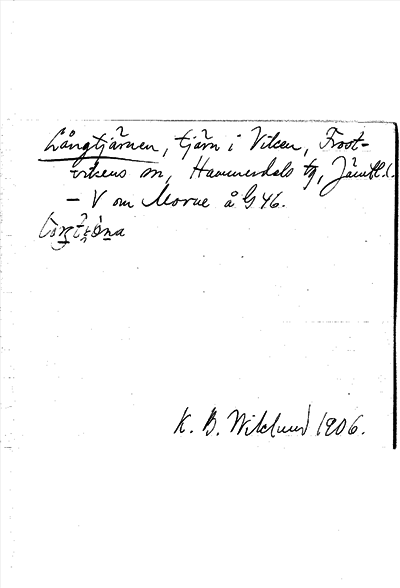 Långtjärnen, tjärn i Viken, Frost-
vikens sn, Hammerdals tg, Jämtl. l.
– V om Morue å G46.
K. B. Wiklund 1906.